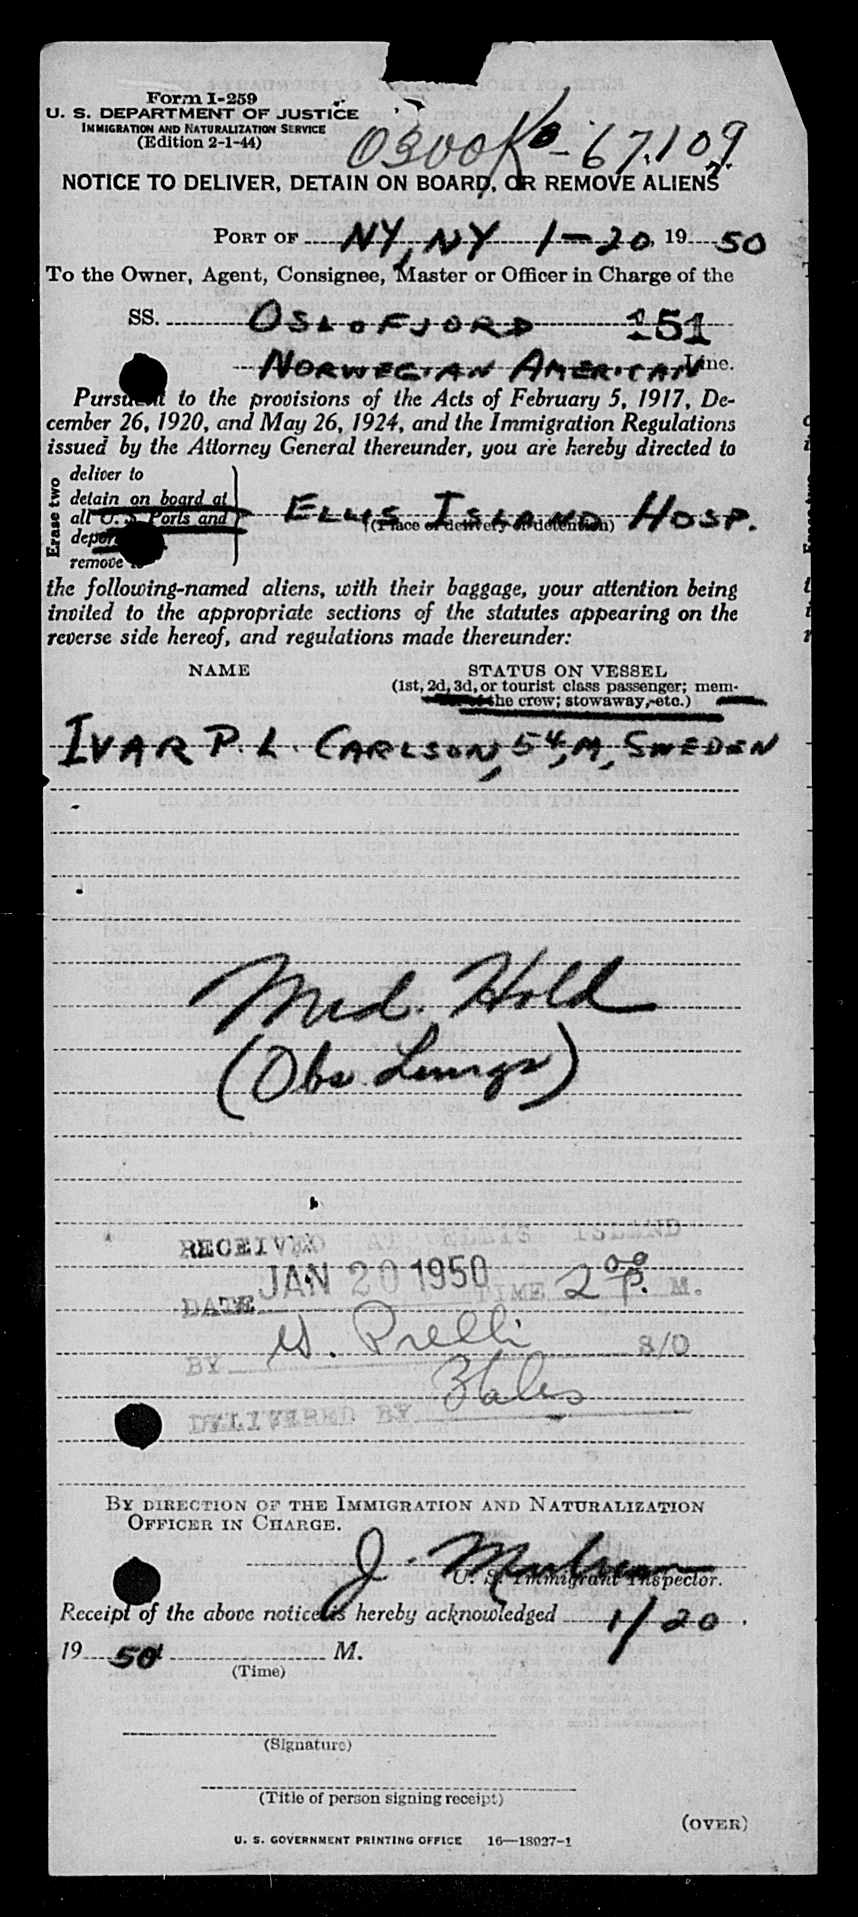 Form I-259
U. S. DEPARTMENT OF JUSTICE
IMMIGRATION AND NATURALIZATION SERVICE
(Edition 2-1-44)
67,109
NOTICE TO DELIVER, DETAIN ON BOARD, OR REMOVE ALIENS
PORT OF NY, NY 1-20, 19 50
To the Owner, Agent, Consignee, Master or Officer in Charge of the
SS. OSLOFJORD 151
NORWEGIAN AMERICAN Line.
Pursuant to the provisions of the Acts of February 5, 1917, De-
cember 26, 1920, and May 26, 1924, and the Immigration Regulations
issued by the Attorney General thereunder, you are hereby directed to
Erase two
deliver to
detain on board at
all U. S. Ports and
deport
remove to
ELLIS ISLAND HOSP.
(Place of delivery or detention)
the following-named aliens, with their baggage, your attention being
invited to the appropriate sections of the statutes appearing on the
reverse side hereof, and regulations made thereunder:
NAME STATUS ON VESSEL
(1st, 2d, 3d, or tourist class passenger; mem-
of the crew; stowaway, etc.)
IVAR P. L. CARLSON, 54, M, SWEDEN
Med. Hold
(Obs Lungs)
RECEIVED AT ELLIS ISLAND
DATE JAN 20 1950 TIME 2 00 P. M.
BY Prelli S/O
DELIVERED BY
BY DIRECTION OF THE IMMIGRATION AND NATURALIZATION
OFFICER IN CHARGE.
J.
U. S. Immigrant Inspector.
Receipt of the above notice is hereby acknowledged 1/20.
19 50 M.
(Time)
(Signature)
(Title of person signing receipt)
(OVER)
U. S. GOVERNMENT PRINTING OFFICE 16—18027-1